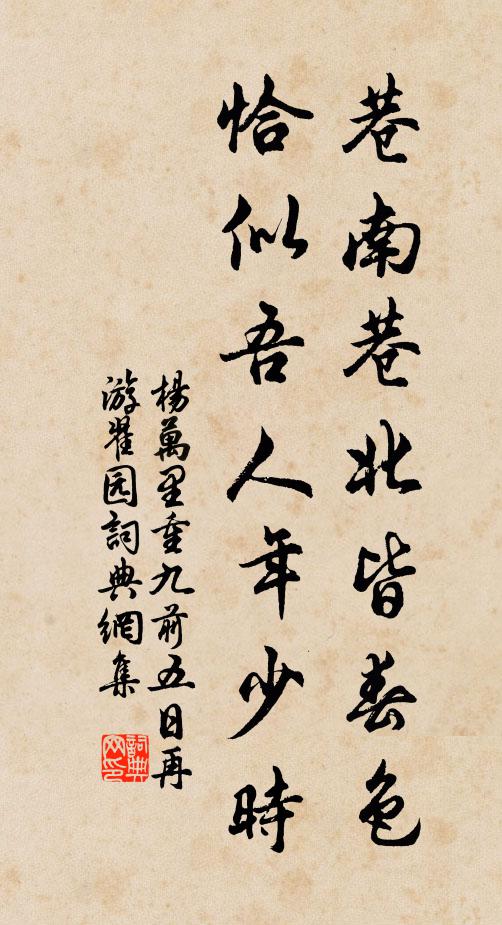 巷南巷北皆春色
恰似吾人年少時
楊萬里重九前五日再
游翟园詞典網集
詞典网印